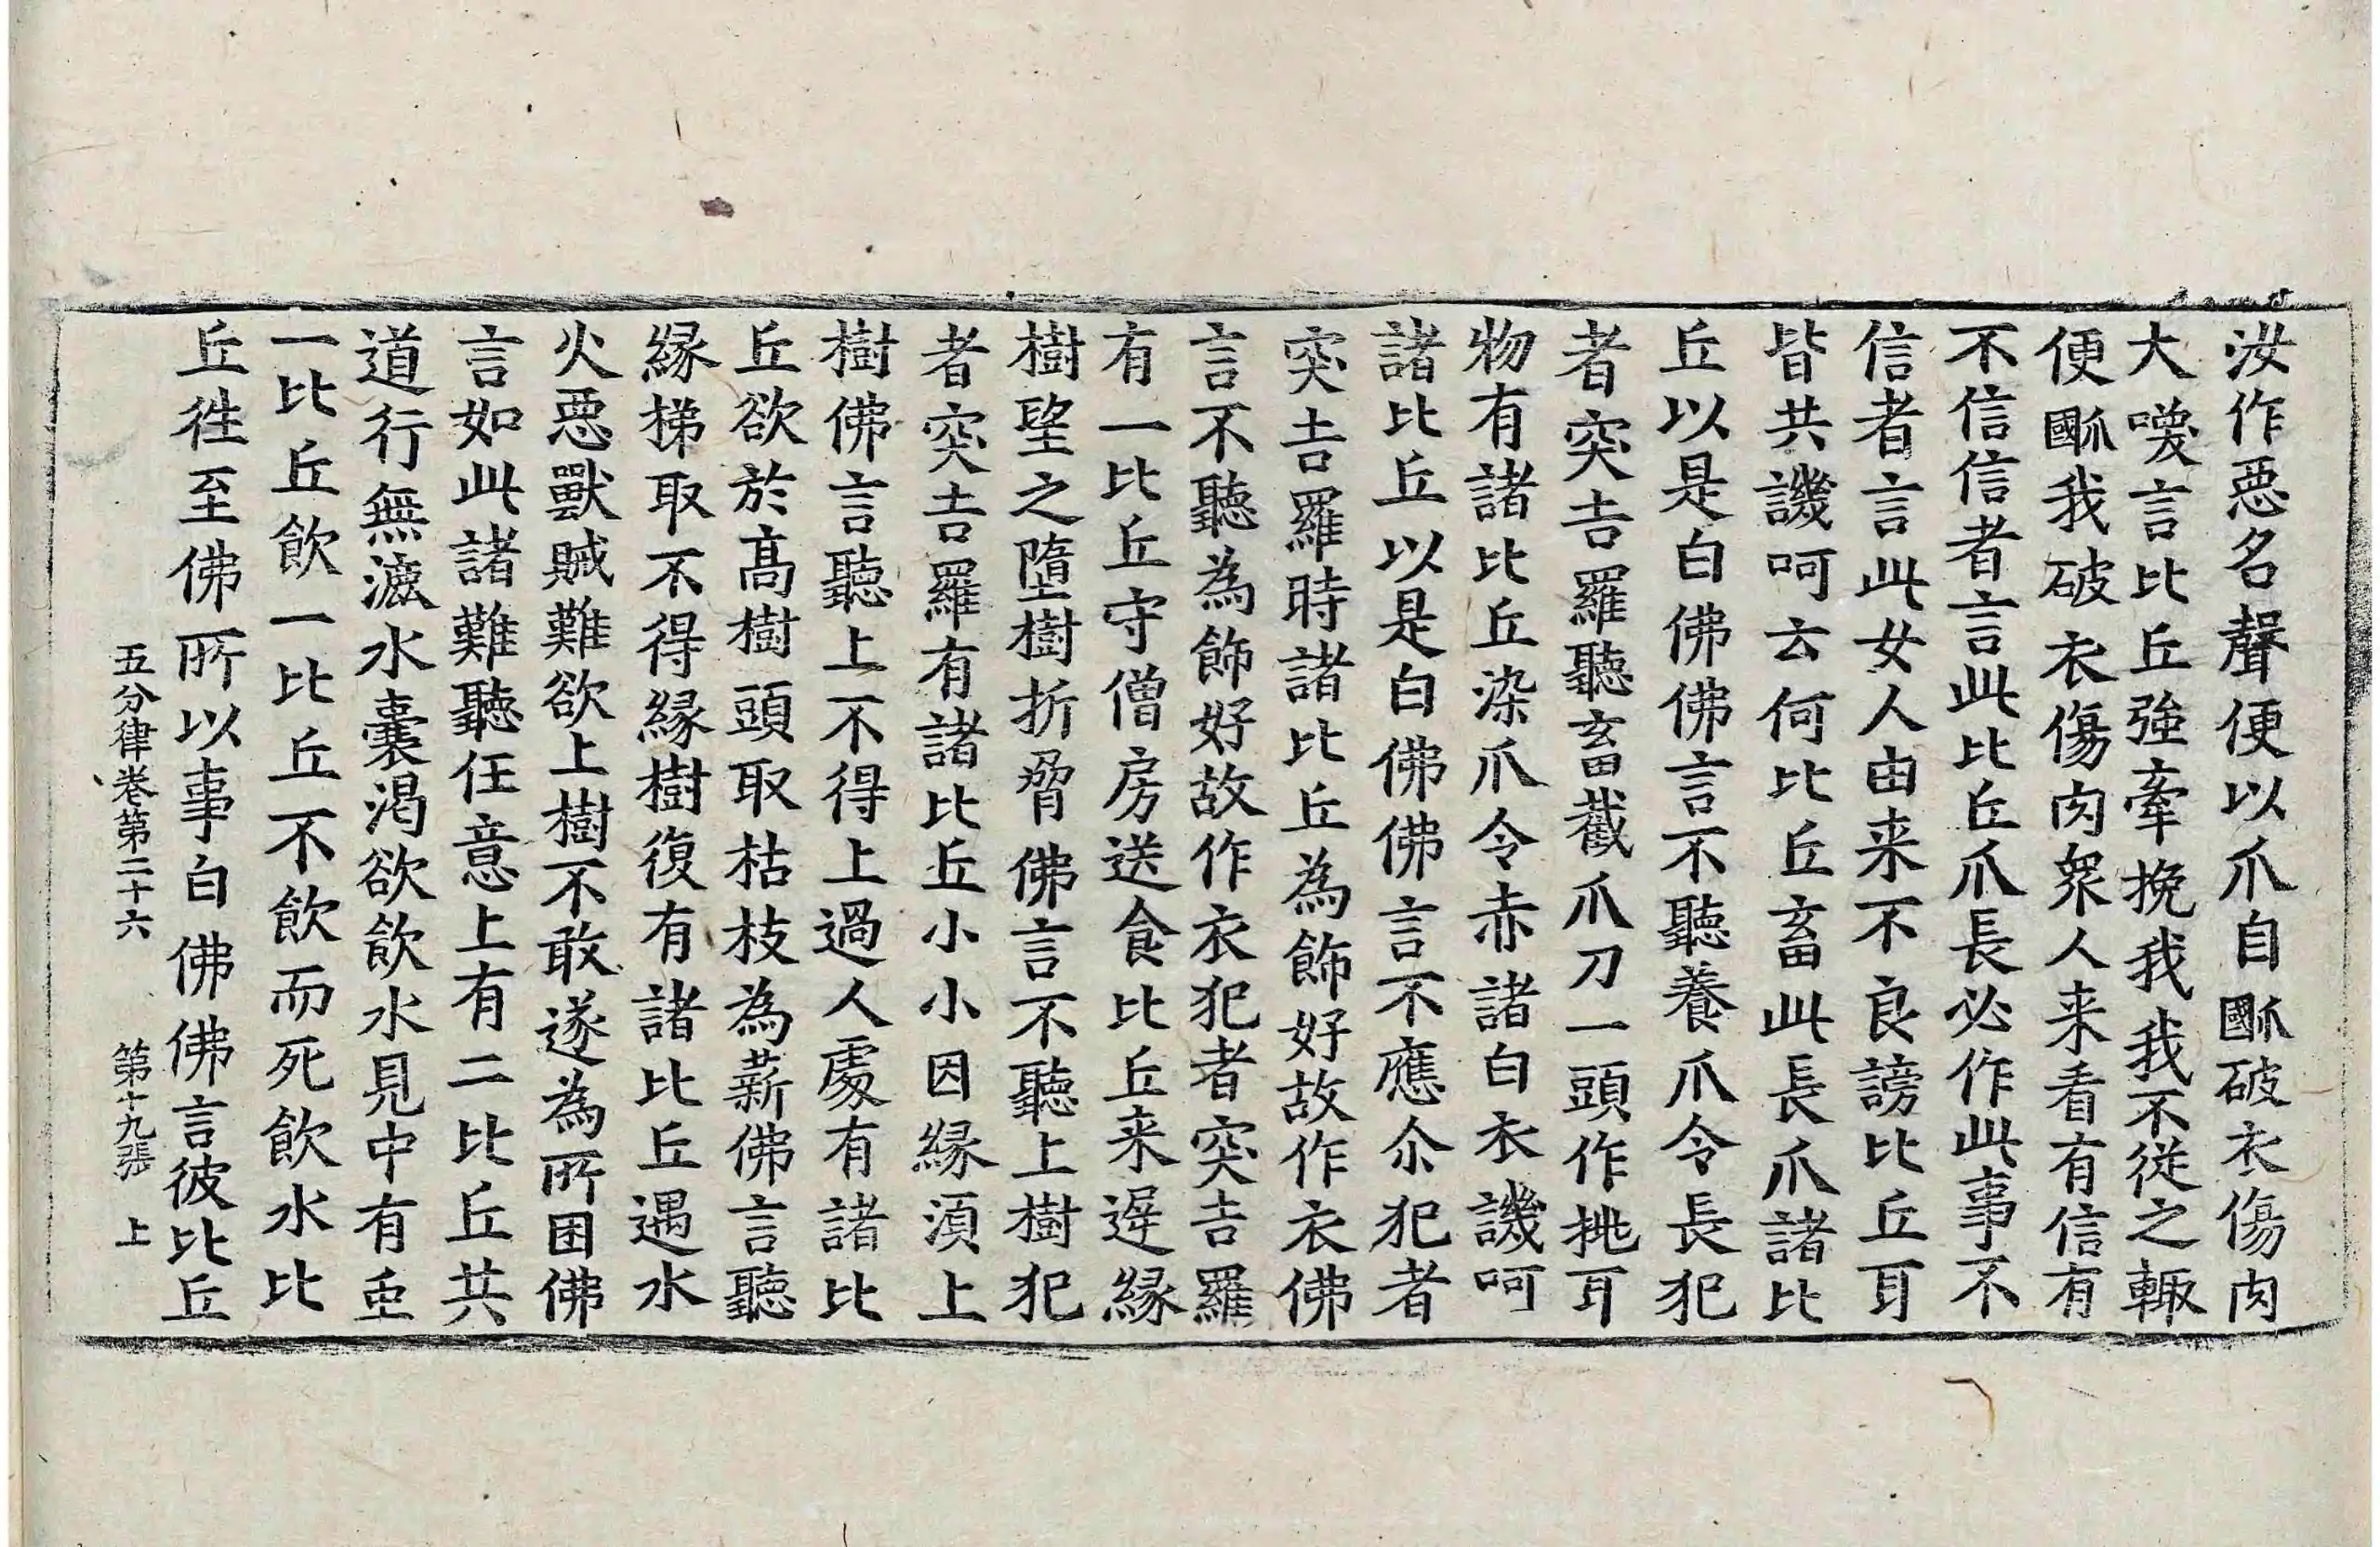 汝作惡名聲便以爪自𤔩破衣傷肉
大喚言比丘強牽挽我我不從之輙
便𤔩我破衣傷肉衆人来看有信有
不信信者言此比丘爪長必作此事不
信者言此女人由来不良謗比丘耳
皆共譏呵云何比丘畜此長爪諸比
丘以是白佛佛言不聽養爪令長犯
者突吉羅聽畜截爪刀一頭作挑耳
物有諸比丘染爪令赤諸白衣譏呵
諸比丘以是白佛佛言不應尒犯者
突吉羅時諸比丘為飾好故作衣佛
言不聽為飾好故作衣犯者突吉羅
有一比丘守僧房送食比丘来遲緣
樹望之墮樹折脅佛言不聽上樹犯
者突吉羅有諸比丘小小因緣湏上
樹佛言聽上不得上過人處有諸比
丘欲於髙樹頭取枯枝為薪佛言聽
緣梯取不得緣樹復有諸比丘遇水
火惡獸賊難欲上樹不敢遂為所困佛
言如此諸難聽任意上有二比丘共
道行無漉水囊渴欲飲水見中有虫
一比丘飲一比丘不飲而死飲水比
丘徃至佛所以事白佛佛言彼比丘
五分律卷第二十六 第十九張 上